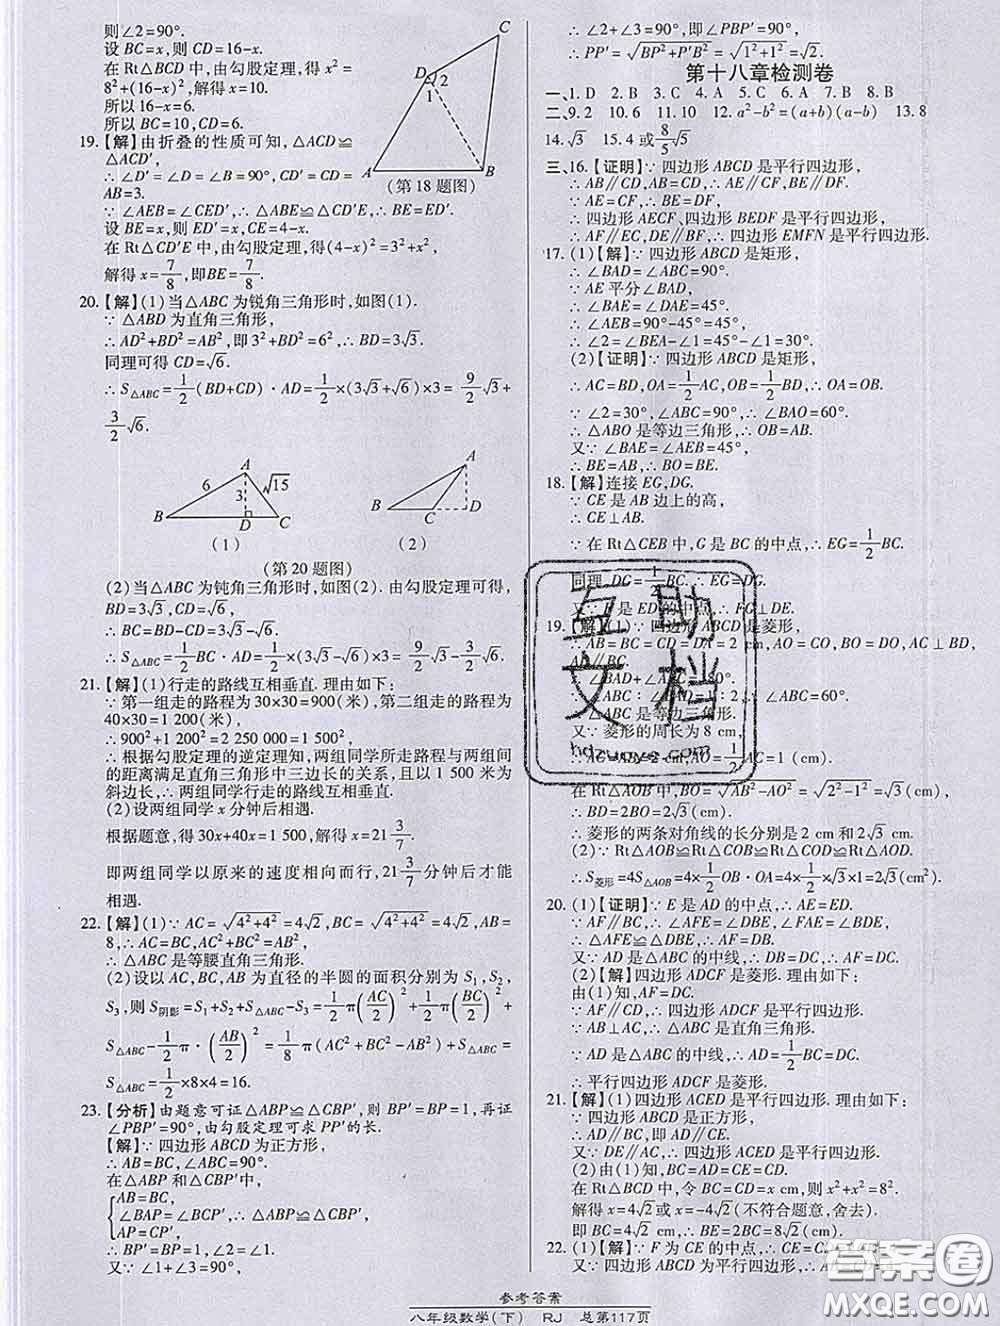 则∠2=90°.
设BC=x,则CD=16-x.
在Rt△BCD中,由勾股定理,得x²=
8²+(16-x)²,解得x=10.
所以16-x=6.
所以BC=10,CD=6.
C
D
2
1
A
B
(第18题图)
19.【解】由折叠的性质可知,△ACD≌
△ACD′,
∴∠D′=∠D=∠B=90°,CD′=CD=
AB=3.
∵∠AEB=∠CED′,∴△ABE≌△CD′E,∴BE=ED′.
设BE=x,则ED′=x,CE=4-x.
在Rt△CD′E中,由勾股定理,得(4-x)²=3²+x²,
解得x=7/8,即BE=7/8.
20.【解】(1)当△ABC为锐角三角形时,如图(1).
∵△ABD为直角三角形,
∴AD²+BD²=AB²,即3²+BD²=6²,∴BD=3√3.
同理可得CD=√6.
∴S△ABC=1/2(BD+CD)·AD=1/2×(3√3+√6)×3=9/2√3+
3/2√6.
A
6
3
√15
B
D
C
(1)
A
B
C
D
(2)
(第20题图)
(2)当△ABC为钝角三角形时,如图(2).由勾股定理可得,
BD=3√3,CD=√6,
∴BC=BD-CD=3√3-√6,
∴S△ABC=1/2BC·AD=1/2×(3√3-√6)×3=9/2√3-3/2√6.
21.【解】(1)行走的路线互相垂直.理由如下:
∵第一组走的路程为30×30=900(米),第二组走的路程为
40×30=1 200(米),
∴900²+1 200²=2 250 000=1 500²,
∴根据勾股定理的逆定理知,两组同学所走路程与两组间
的距离满足直角三角形中三边长的关系,且以1 500米为
斜边长,∴两组同学行走的路线互相垂直.
(2)设两组同学x分钟后相遇.
根据题意,得30x+40x=1 500,解得x=21 3/7
即两组同学以原来的速度相向而行,21 3/7分钟后才能
相遇.
22.【解】(1)∵AC=√4²+4²=4√2,BC=√4²+4²=4√2,AB=
8,∴AC=BC,AC²+BC²=AB²,
∴△ABC是等腰直角三角形.
(2)设以AC,BC,AB为直径的半圆的面积分别为S₁,S₂,
S₃,则S阴影=S₁+S₂+S△ABC-S₃=1/2π(AC/2)²+1/2π(BC/2)²+
S△ABC-1/2π·(AB/2)²=1/8π(AC²+BC²-AB²)+S△ABC=
S△ABC=1/2×8×4=16.
23.【分析】由题意可证△ABP≌△CBP′,则BP′=BP=1,再证
∠PBP′=90°,由勾股定理可求PP′的长.
【解】∵四边形ABCD为正方形,
∴AB=BC,∠ABC=90°.
在△ABP和△CBP′中,
AB=BC,
∠BAP=∠BCP′,∴△ABP≌△CBP′,
AP=CP′,
∴BP′=BP=1,∠2=∠1.
又∵∠1+∠3=90°,
∴∠2+∠3=90°,即∠PBP′=90°,
∴PP′=√BP²+P′B²=√1²+1²=√2.
第十八章检测卷
一、1.D 2.B 3.C 4.C 5.C 6.A 7.B 8.B
二、9.2 10.6 11.10 12.a²-b²=(a+b)(a-b) 13.8
14.√3 15.4或8/5√5
三、16.【证明】∵四边形ABCD是平行四边形,
∴AB∥CD,AB=CD,∴AE∥CF,BE∥DF.
∵AE=CF,∴BE=DF,
∴四边形AECF、四边形BEDF是平行四边形,
∴AF∥EC,DE∥BF,∴四边形EMFN是平行四边形.
17.(1)【解】∵四边形ABCD是矩形,
∴∠BAD=∠ABC=90°.
∵AE平分∠BAD,
∴∠BAE=∠DAE=45°.
∴∠AEB=90°-45°=45°,
∴∠2=∠BEA-∠1=45°-∠1=30°.
(2)【证明】∵四边形ABCD是矩形,
∴AC=BD,OA=1/2AC,OB=1/2BD,∴OA=OB.
∵∠2=30°,∠ABC=90°,∴∠BAO=60°.
∴△ABO是等边三角形,∴OB=AB.
又∵∠BAE=∠AEB=45°,
∴BE=AB,∴BO=BE.
18.【解】连接EG,DG.
∵CE是AB边上的高,
∴CE⊥AB.
∵在Rt△CEB中,G是BC的中点,∴EG=1/2BC.
同理,DG=1/2BC.∴EG=DG.
又∵F是ED的中点,∴FG⊥DE.
19.【解】(1)∵四边形ABCD是菱形,
∴AB=BC=CD=DA=2 cm,AO=CO,BO=DO,AC⊥BD,
AD∥BC.
∴∠BAD+∠ABC=180°.
∠ABC=60°.
∴△ABC是等边三角形.
又∵菱形的周长为8 cm,
AO=1/2AC=1(cm).
在Rt△AOB中,BO=√AB²-AO²=√2²-1²=√3(cm),
∴BD=2BO=2√3(cm).
∴菱形的两条对角线的长分别是2 cm和2√3 cm.
(2)∵Rt△AOB≌Rt△COB≌Rt△COD≌Rt△AOD,
∴S菱形=4S△AOB=4×1/2OB·OA=4×1/2×√3×1=2√3(cm²).
20.(1)【证明】∵E是AD的中点,∴AE=ED.
∵AF∥BC,∴∠AFE=∠DBE,∠FAE=∠BDE,
∴△AFE≌△DBE,∴AF=DB.
又∵AD是△ABC的中线,∴DB=DC,∴AF=DC.
(2)【解】四边形ADCF是菱形.理由如下:
由(1)知,AF=DC.
∵AF∥CD,∴四边形ADCF是平行四边形.
∵AB⊥AC,∴△ABC是直角三角形.
∵AD是△ABC的中线,∴AD=1/2BC=DC,
∴平行四边形ADCF是菱形.
21.【解】(1)四边形ACED是平行四边形.理由如下:
∵四边形ABCD是正方形,
∴AD∥BC,即AD∥CE.
又∵DE∥AC,∴四边形ACED是平行四边形.
(2)由(1)知,BC=AD=CE=CD.
在Rt△BCD中,令BC=CD=x cm,则x²+x²=8².
解得x=4√2或x=-4√2(不符合题意,舍去).
即BC=4√2 cm,∴BE=2BC=8√2(cm).
22.(1)【解】∵F为CE的中点,∴CE=
又∵四边形ABCD是平行四边形,∴AB=CD=
互助
文档
hdzuoye.com
答案圈
MXQE.COM
参考答案
八年级数学(下) RJ 总第117页